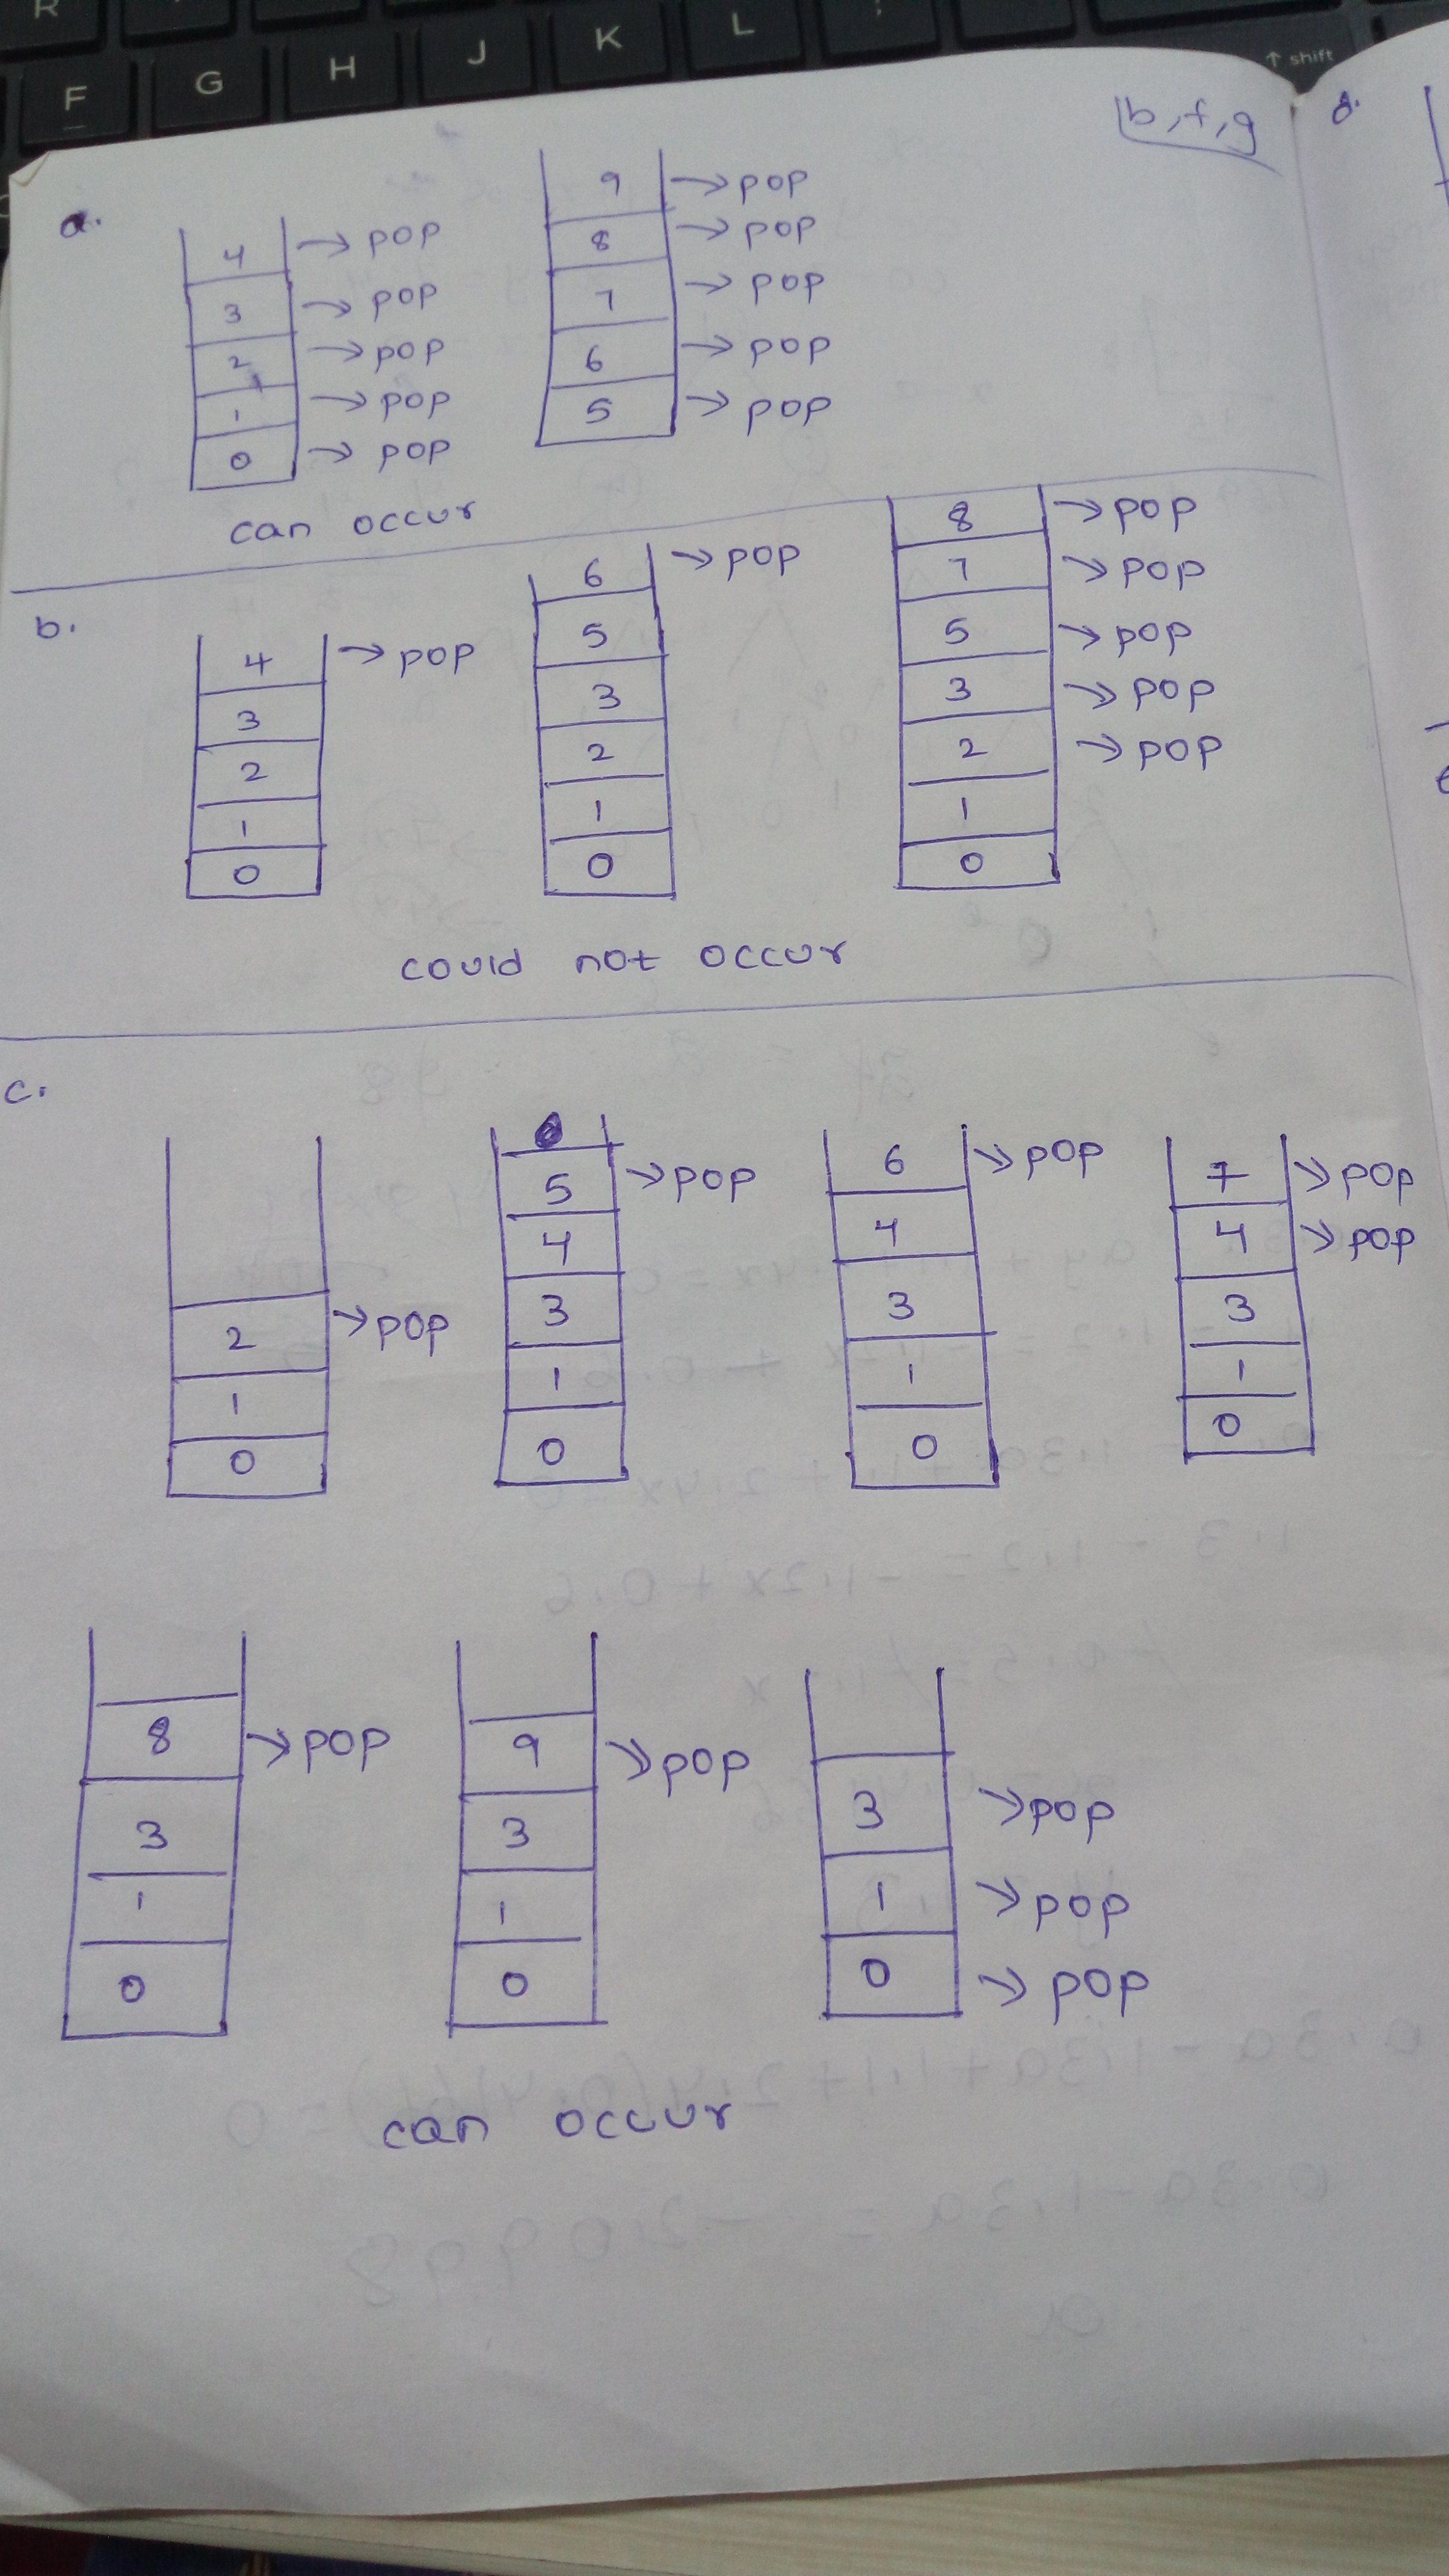 R
F G H J K L
↑ shift
b, f, g
a.
4 → pop
3 → pop
2 → pop
1 → pop
0 → pop
9 → pop
8 → pop
7 → pop
6 → pop
5 → pop
can occur
b.
4 → pop
3
2
1
0
6 → pop
5
3
2
1
0
8 → pop
7 → pop
5 → pop
3 → pop
2 → pop
1
0
could not occur
c.
2 → pop
1
0
5 → pop
4
3
1
0
6 → pop
4
3
1
0
7 → pop
4 → pop
3
1
0
8 → pop
3
1
0
9 → pop
3
1
0
3 → pop
1 → pop
0 → pop
can occur